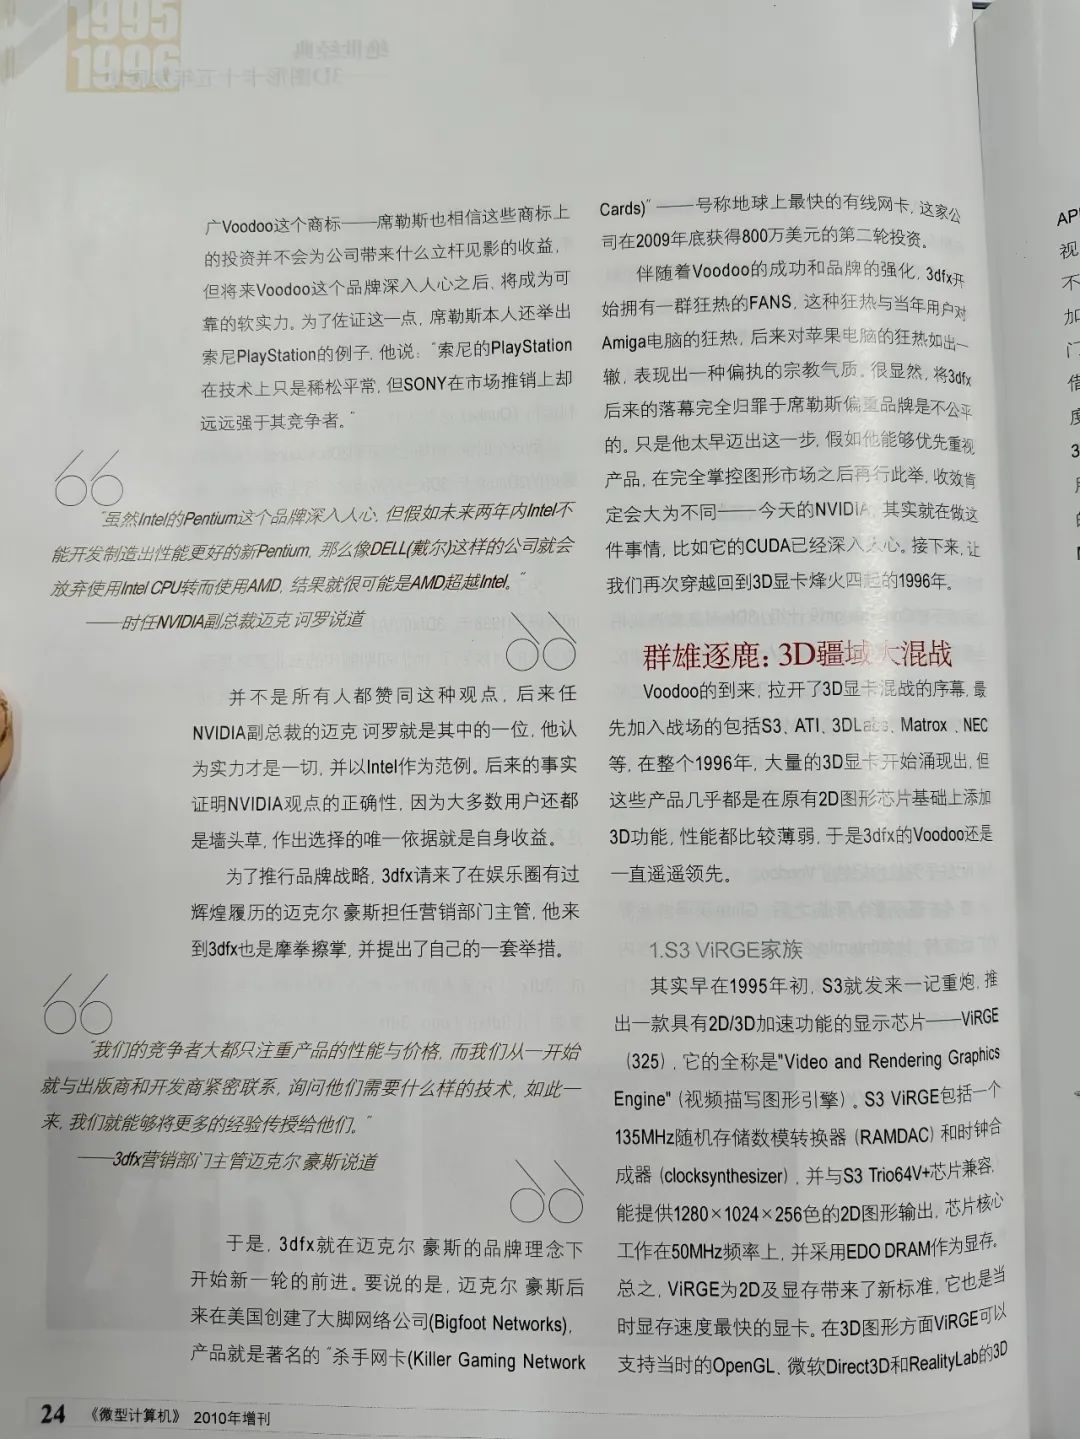 1995
1996
广Voodoo这个商标——席勒斯也相信这些商标上
的投资并不会为公司带来什么立杆见影的收益,
但将来Voodoo这个品牌深入人心之后、将成为可
靠的软实力。为了佐证这一点,席勒斯本人还举出
索尼PlayStation的例子,他说:“索尼的PlayStation
在技术上只是稀松平常,但SONY在市场推销上却
远远强于其竞争者。”
“虽然Intel的Pentium这个品牌深入人心,但假如未来两年内Intel不
能开发制造出性能更好的新Pentium,那么像DELL(戴尔)这样的公司就会
放弃使用Intel CPU转而使用AMD,结果就很可能是AMD超越Intel。”
——时任NVIDIA副总裁迈克 诃罗说道
并不是所有人都赞同这种观点,后来任
NVIDIA副总裁的迈克 诃罗就是其中的一位,他认
为实力才是一切,并以Intel作为范例。后来的事实
证明NVIDIA观点的正确性,因为大多数用户还都
是墙头草,作出选择的唯一依据就是自身收益。
为了推行品牌战略,3dfx请来了在娱乐圈有过
辉煌履历的迈克尔 豪斯担任营销部门主管,他来
到3dfx也是摩拳擦掌,并提出了自己的一套举措。
“我们的竞争者大都只注重产品的性能与价格,而我们从一开始
就与出版商和开发商紧密联系,询问他们需要什么样的技术,如此一
来,我们就能够将更多的经验传授给他们。”
——3dfx营销部门主管迈克尔 豪斯说道
于是,3dfx就在迈克尔 豪斯的品牌理念下
开始新一轮的前进。要说的是,迈克尔 豪斯后
来在美国创建了大脚网络公司(Bigfoot Networks),
产品就是著名的“杀手网卡(Killer Gaming Network
Cards)”——号称地球上最快的有线网卡,这家公
司在2009年底获得800万美元的第二轮投资。
伴随着Voodoo的成功和品牌的强化,3dfx开
始拥有一群狂热的FANS,这种狂热与当年用户对
Amiga电脑的狂热,后来对苹果电脑的狂热如出一
辙,表现出一种偏执的宗教气质。很显然,将3dfx
后来的落幕完全归罪于席勒斯偏重品牌是不公平
的。只是他太早迈出这一步,假如他能够优先重视
产品,在完全掌控图形市场之后再行此举,收效肯
定会大为不同——今天的NVIDIA,其实就在做这
件事情,比如它的CUDA已经深入人心。接下来,让
我们再次穿越回到3D显卡烽火四起的1996年。
群雄逐鹿:3D疆域大混战
Voodoo的到来,拉开了3D显卡混战的序幕,最
先加入战场的包括S3、ATI、3DLabs、Matrox、NEC
等,在整个1996年,大量的3D显卡开始涌现出,但
这些产品几乎都是在原有2D图形芯片基础上添加
3D功能,性能都比较薄弱,于是3dfx的Voodoo还是
一直遥遥领先。
1.S3 ViRGE家族
其实早在1995年初,S3就发来一记重炮,推
出一款具有2D/3D加速功能的显示芯片——ViRGE
(325),它的全称是"Video and Rendering Graphics
Engine"(视频描写图形引擎)。S3 ViRGE包括一个
135MHz随机存储数模转换器(RAMDAC)和时钟合
成器(clocksynthesizer),并与S3 Trio64V+芯片兼容,
能提供1280×1024×256色的2D图形输出,芯片核心
工作在50MHz频率上,并采用EDO DRAM作为显存。
总之,ViRGE为2D及显存带来了新标准,它也是当
时显存速度最快的显卡。在3D图形方面ViRGE可以
支持当时的OpenGL、微软Direct3D和RealityLab的3D
24 《微型计算机》 2010年增刊